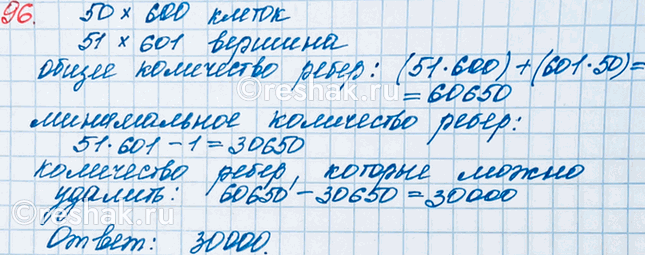 96. 50 × 600 клеток
51 × 601 вершина
общее количество ребер: (51·600)+(601·50)=
= 60650
минимальное количество ребер:
51·601 − 1 = 30650
количество ребер, которые можно
удалить: 60650 − 30650 = 30000
Ответ: 30000.
©reshak.ru